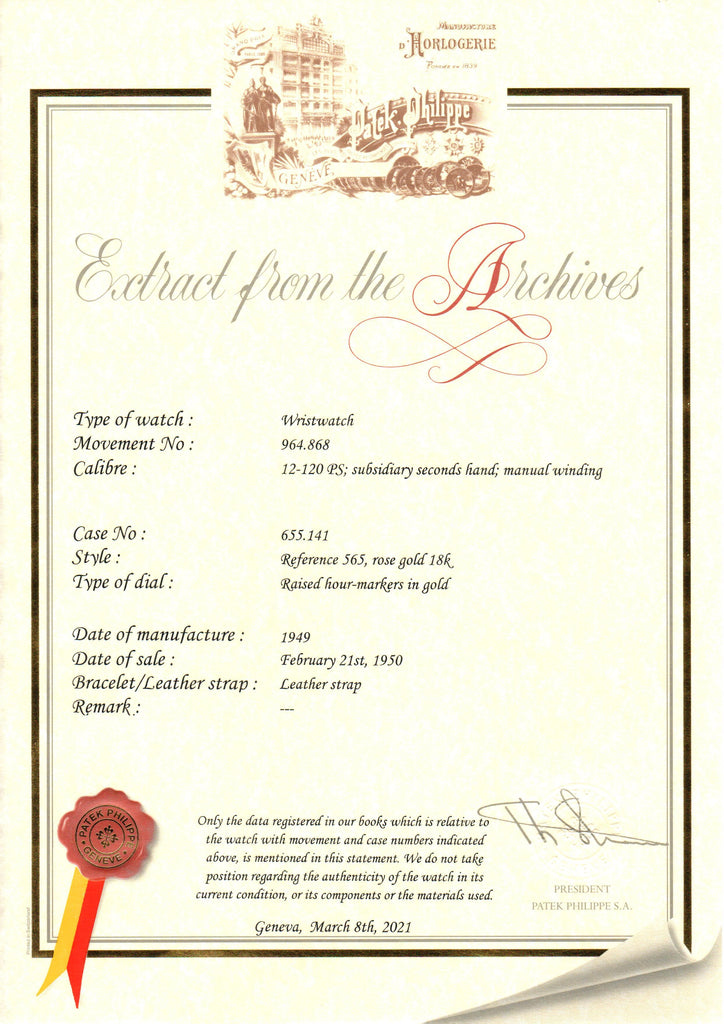 MANUFACTURE
D'HORLOGERIE
FONDÉE EN 1839
Patek Philippe
GENÈVE
Extract from the Archives
Type of watch : Wristwatch
Movement No : 964.868
Calibre : 12-120 PS; subsidiary seconds hand; manual winding
Case No : 655.141
Style : Reference 565, rose gold 18k
Type of dial : Raised hour-markers in gold
Date of manufacture : 1949
Date of sale : February 21st, 1950
Bracelet/Leather strap : Leather strap
Remark : ---
PATEK PHILIPPE
GENEVE
Only the data registered in our books which is relative to
the watch with movement and case numbers indicated
above, is mentioned in this statement. We do not take
position regarding the authenticity of the watch in its
current condition, or its components or the materials used.
Geneva, March 8th, 2021
PRESIDENT
PATEK PHILIPPE S.A.
Printed in Switzerland